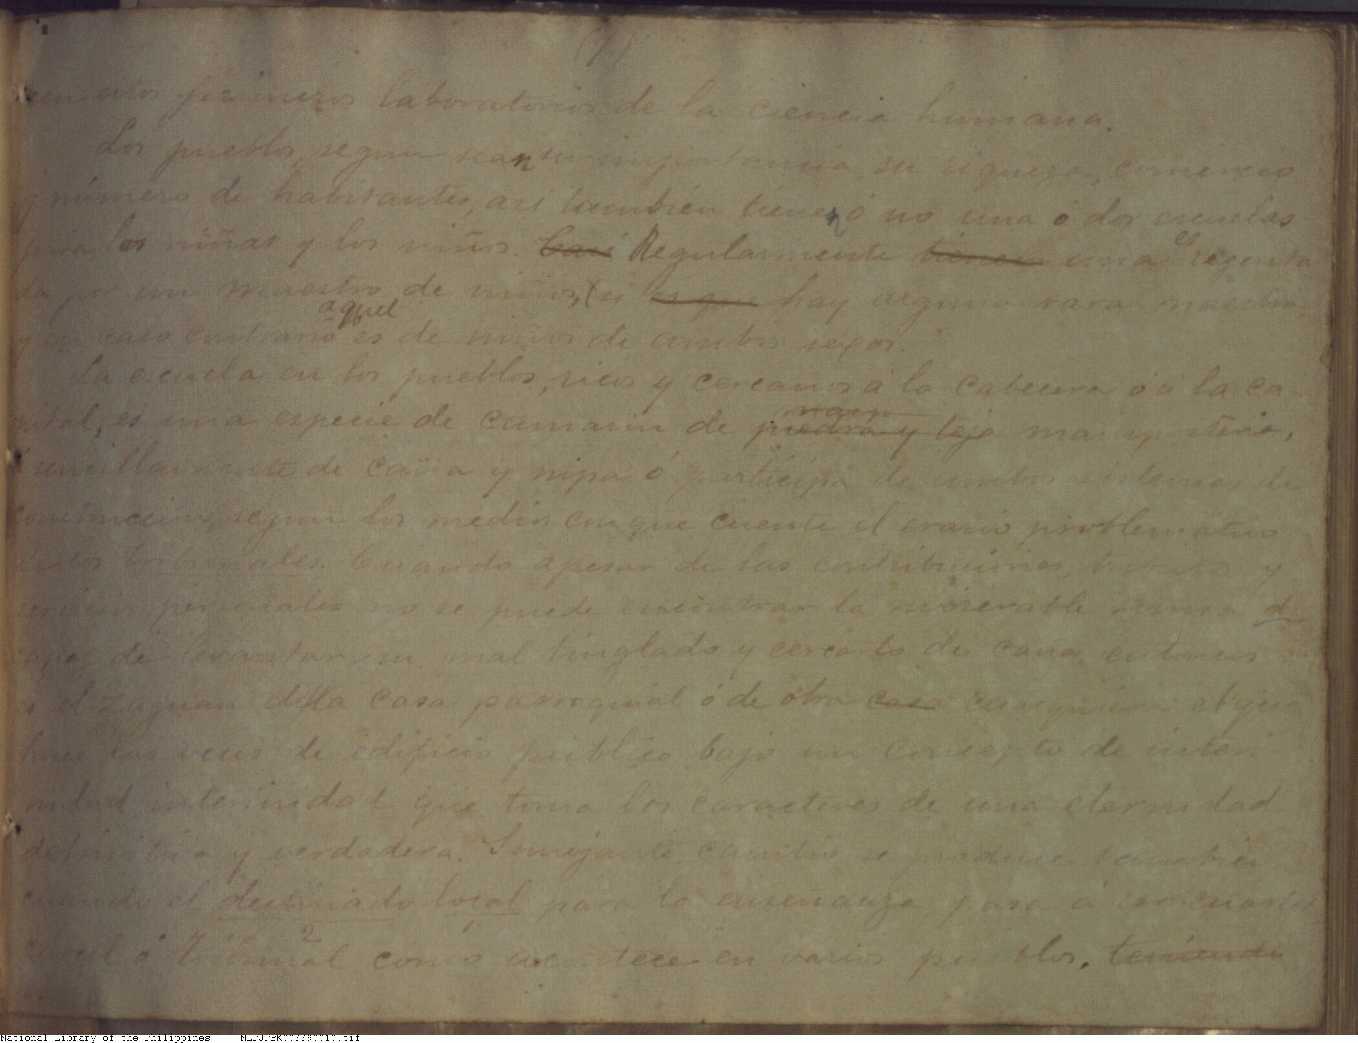 estos primeros laboratorios de la ciencia humana.
Los pueblos, segun sean su importancia, su riqueza, comercio
y número de habitantes, asi tambien tienen ó no una ó dos escuelas
para las niñas y los niños. Casi Regularmente tienen una es regenta
da por un maestro de niños, si es que hay alguna rara maestra,
y en caso contrario aquel es de niños de ambos sexos.
La escuela en los pueblos, ricos y cercanos á la cabecera ó á la ca
pital, es una especie de camarin de piedra y teja mamposteria,
sencillamente de caña y nipa ó participa de ambos sistemas de
construccion, segun los medios con que cuente el erario problematico
de los tribunales. Cuando apesar de las contribuciones, y
personales no se puede encontrar la miserable suma
capaz de levantar un mal tinglado y cercarlo de caña, entonces
es el zaguan de la casa parroquial ó de otra casa cualquiera el que
hace las veces de edificio público bajo un concepto de interi
nidad interinidad que toma los caracteres de una eternidad
definitiva y verdadera. Semejante cambio se produce tambien
cuando el destinado local para la enseñanza, pasa á ser cuartel
carcel ó Tribunal como acontece en varios pueblos, teniendo
National Library of the Philippines